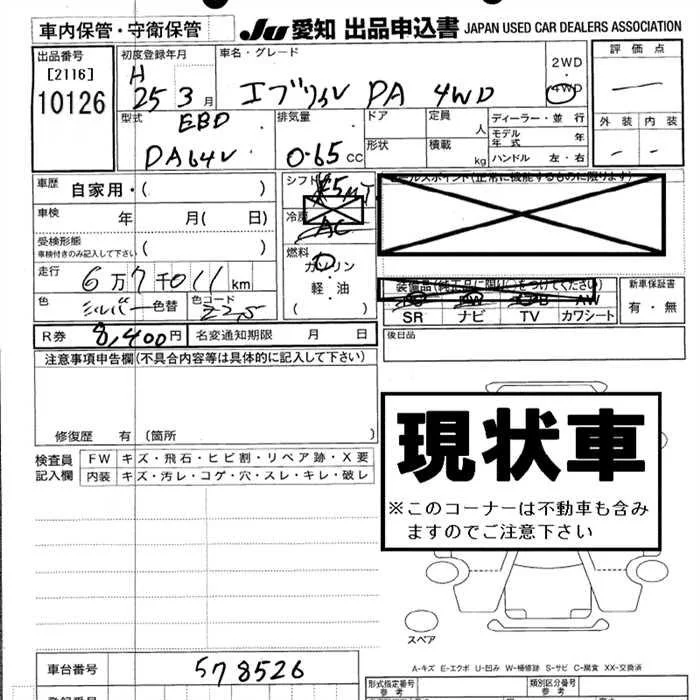 車内保管・守衛保管
JU 愛知 出品申込書 JAPAN USED CAR DEALERS ASSOCIATION
出品番号
[2116]
10126
初度登録年月
H 25 3月
車名・グレード
エブリイV PA 4WD
2WD
・
4WD
評価点
—
外装 内装
- -
型式
EBD
DA64V
排気量
0.65 CC
ドア
形状
定員
人
積載
kg
ディーラー・並行
モデル年式 年
ハンドル 左・右
車歴 自家用・( )
車検 年 月( 日)
受検形態
車検付きのみ記入して下さい ( )
走行 6万7千011km
色 シルバー 色替 色コード Z2S
R券 8,400円 名変通知期限 月 日
シフト
5MT
冷房
AC
燃料
ガソリン
・
軽・油
( )
セールスポイント(正常に機能するものに限ります)
装備品(純正品に限り○をつけてください)
AW
SR ナビ TV カワシート
新車保証書
有・無
後日品
注意事項申告欄(不具合内容等は具体的に記入して下さい)
修復歴 有 〔箇所 〕
検査員記入欄
FW キズ・飛石・ヒビ割・リペア跡・X要
内装 キズ・汚レ・コゲ・穴・スレ・キレ・破レ
現状車
※このコーナーは不動車も含み
ますのでご注意下さい
スペア
A-キズ E-エクボ U-凹み W-補修跡 S-サビ C-腐食 XX-交換済
車台番号 578526
形式指定番号
参考
類別区分番号
参考
登録番号